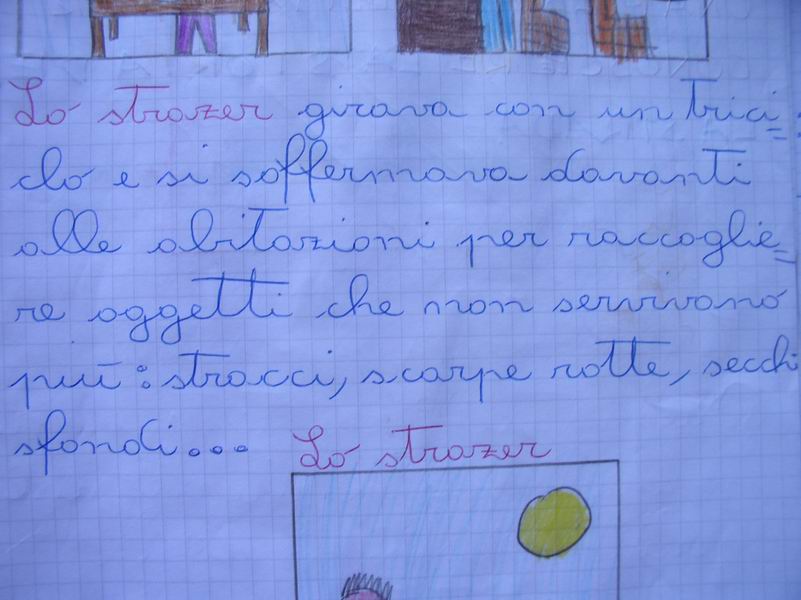 Lo strazer girava con un trici=
clo e si soffermava davanti
alle abitazioni per raccoglie=
re oggetti che non servivano
più: stracci, scarpe rotte, secchi
sfondi...
Lo strazer